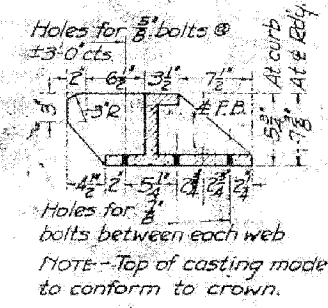 Holes for 5/8" bolts @
±3'-0" cts.
2" 6 1/2" 3 1/2" 7 1/2"
At curb
At ℄ Rdy.
3"
3"R.
℄ F.B.
5 3/4"
7 3/8"
4 1/2" 2" 5 1/4" 2 3/4" 2 1/4"
Holes for 7/8"
bolts between each web
NOTE-Top of casting made
to conform to crown.